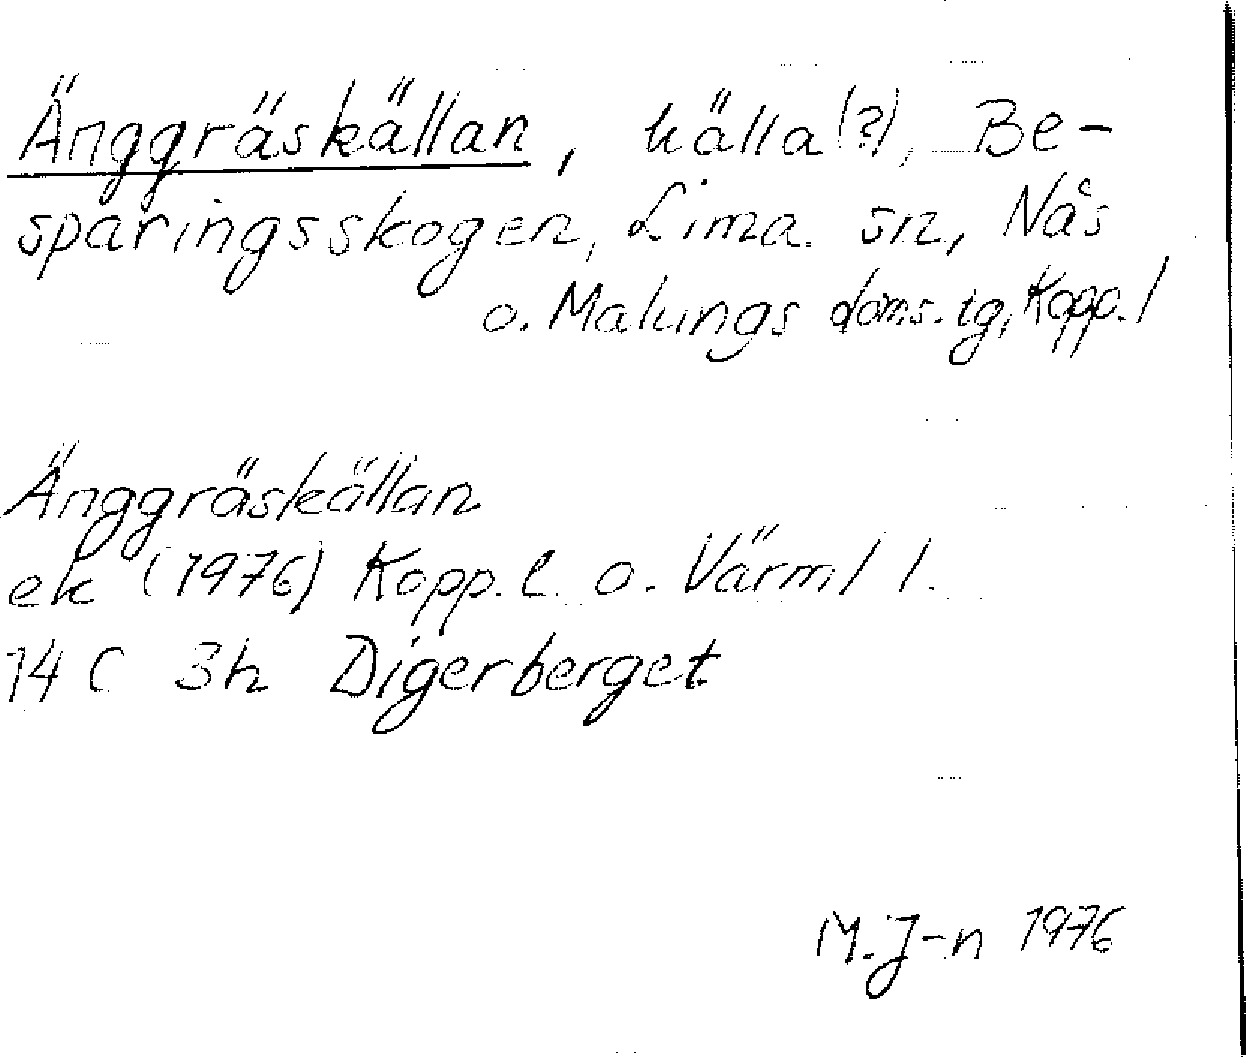 Änggräskällan, källa(?), Be-
sparingsskogen, Lima sn, Nås
o. Malungs doms. tg, Kopp. l
Änggräskällan
ek (1976) Kopp. l. o. Värml l.
14 C 3h Digerberget
M. J-n 1976